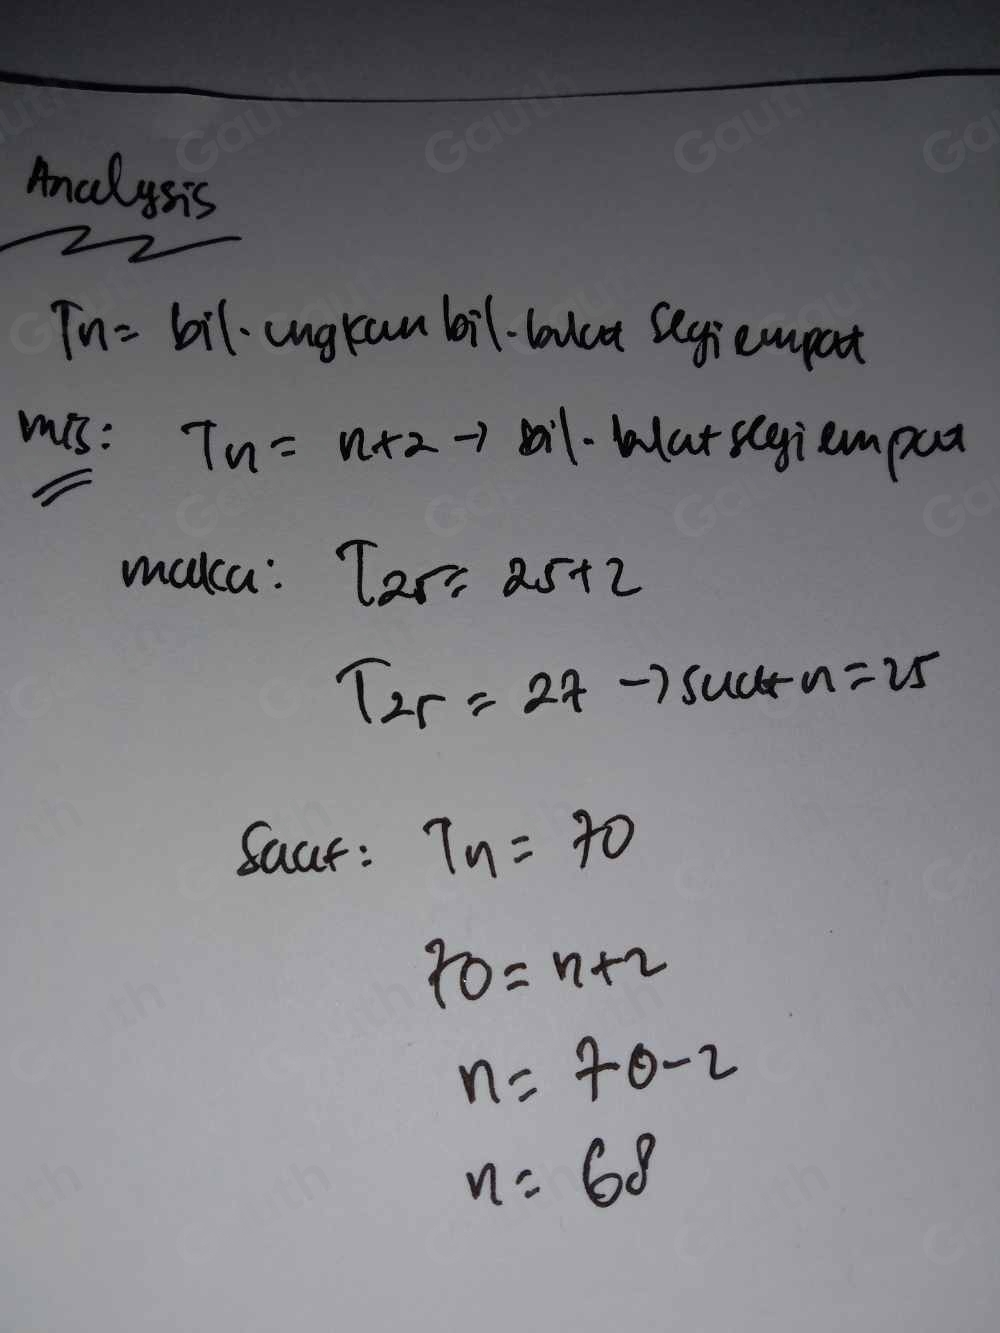 Analysis
Tn = bil. ungkan bil. bulat segi empat
mis: Tn = n+2 → bil. bulat segi empat
maka: T25 = 25+2
T25 = 27 → saat n = 25
Saat: Tn = 70
70 = n+2
n = 70-2
n = 68